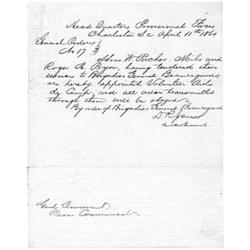 Head Quarters Provisional Forces
Charleston S.C. April 11th 1861
General Orders
No 17
W. Porcher Miles and
Roger A. Pryor, having tendered their
services to Brigadier General Beauregard
are hereby appointed Volunteer Aids
de Camp, and all orders transmitted
through them will be obeyed.
By order of Brigadier General Beauregard
D. R. Jones